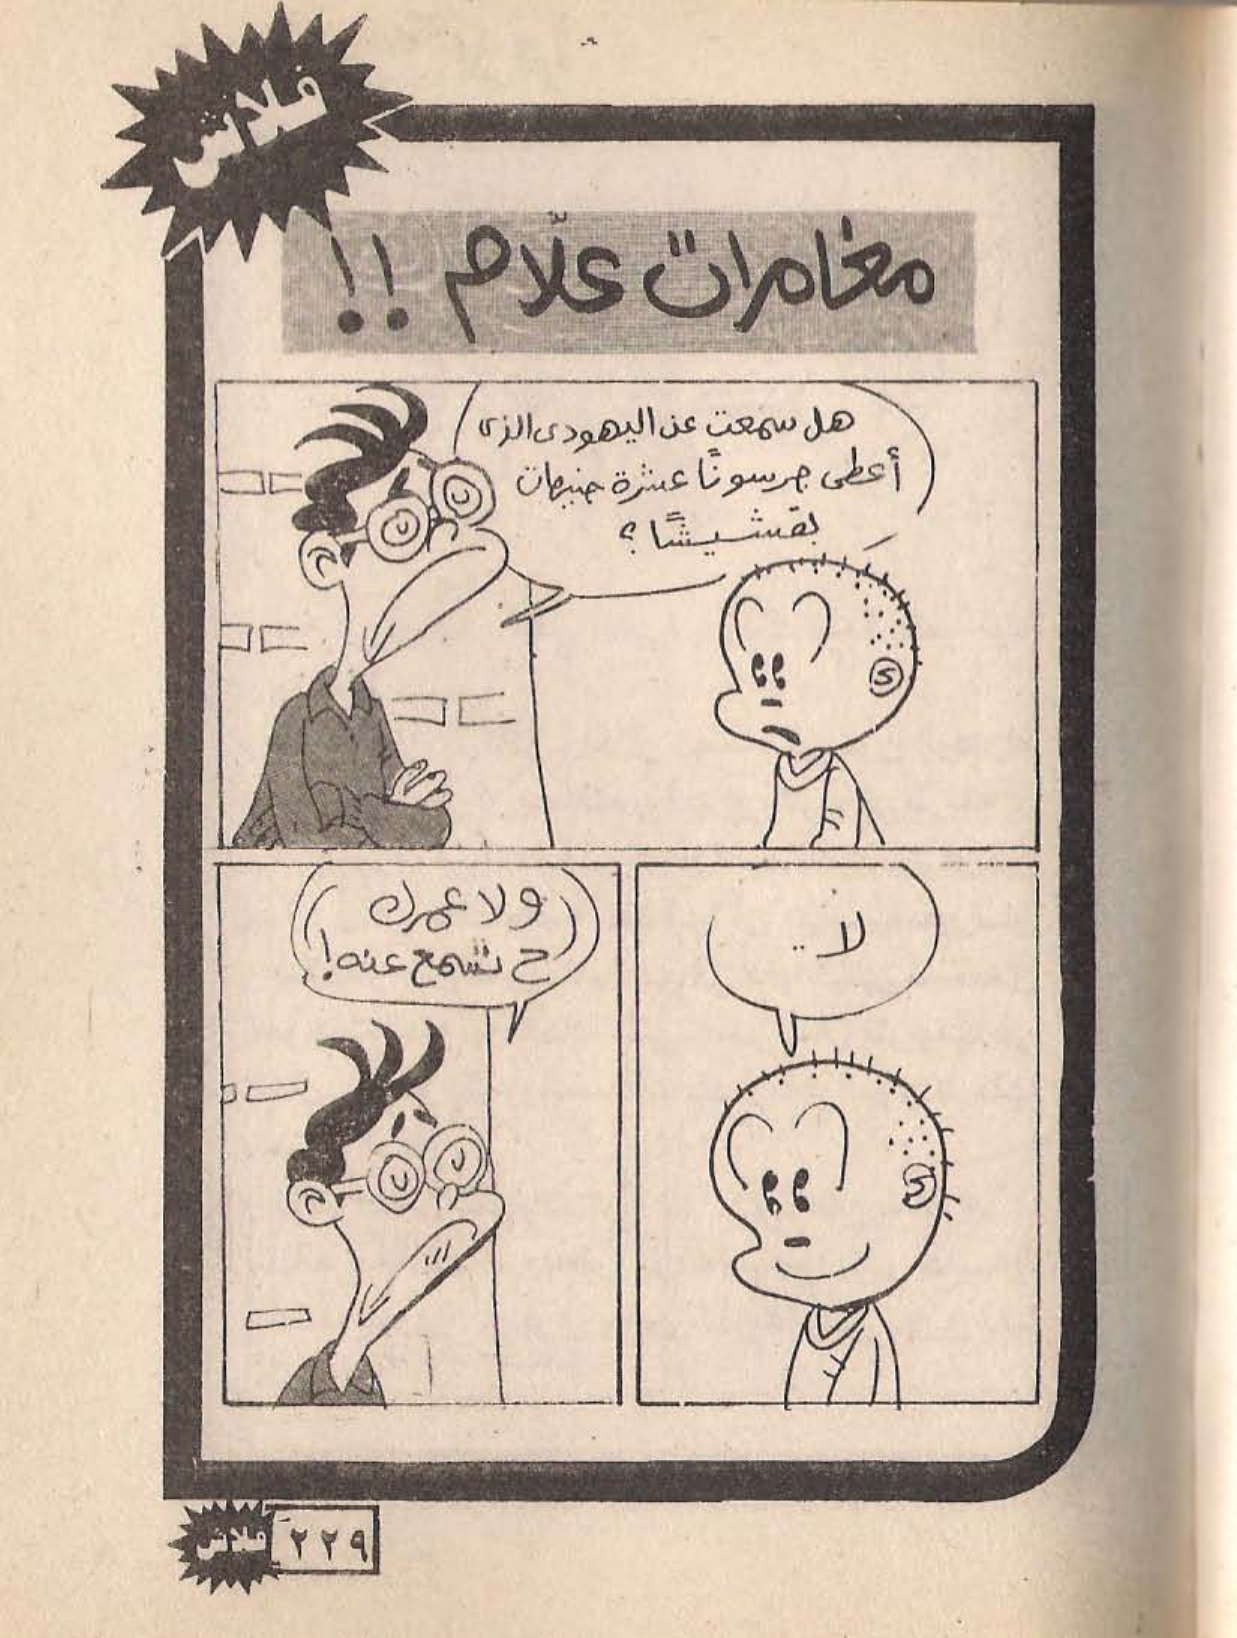 فلاش
مغامرات علّام !!
هل سمعت عن اليهودى الذى
أعطى جرسونًا عشرة جنيهات
بقشيشًا ؟
لا ..
ولا عمرك
ح تسمع عنه !
٢٢٩
فلاش